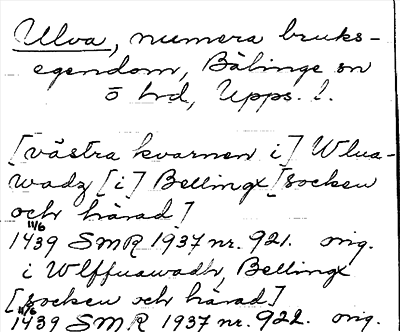 Ulva, numera bruks-
egendom, Bälinge sn
o hd, Upps. l.
[västra kvarnen i] Wlua-
wadz [i] Bellingx [socken
och härad]
11/6 1439 SMR 1937 nr. 921. orig.
i Wlffuawadh, Bellingx
[socken och härad]
11/6 1439 SMR 1937 nr. 922. orig.